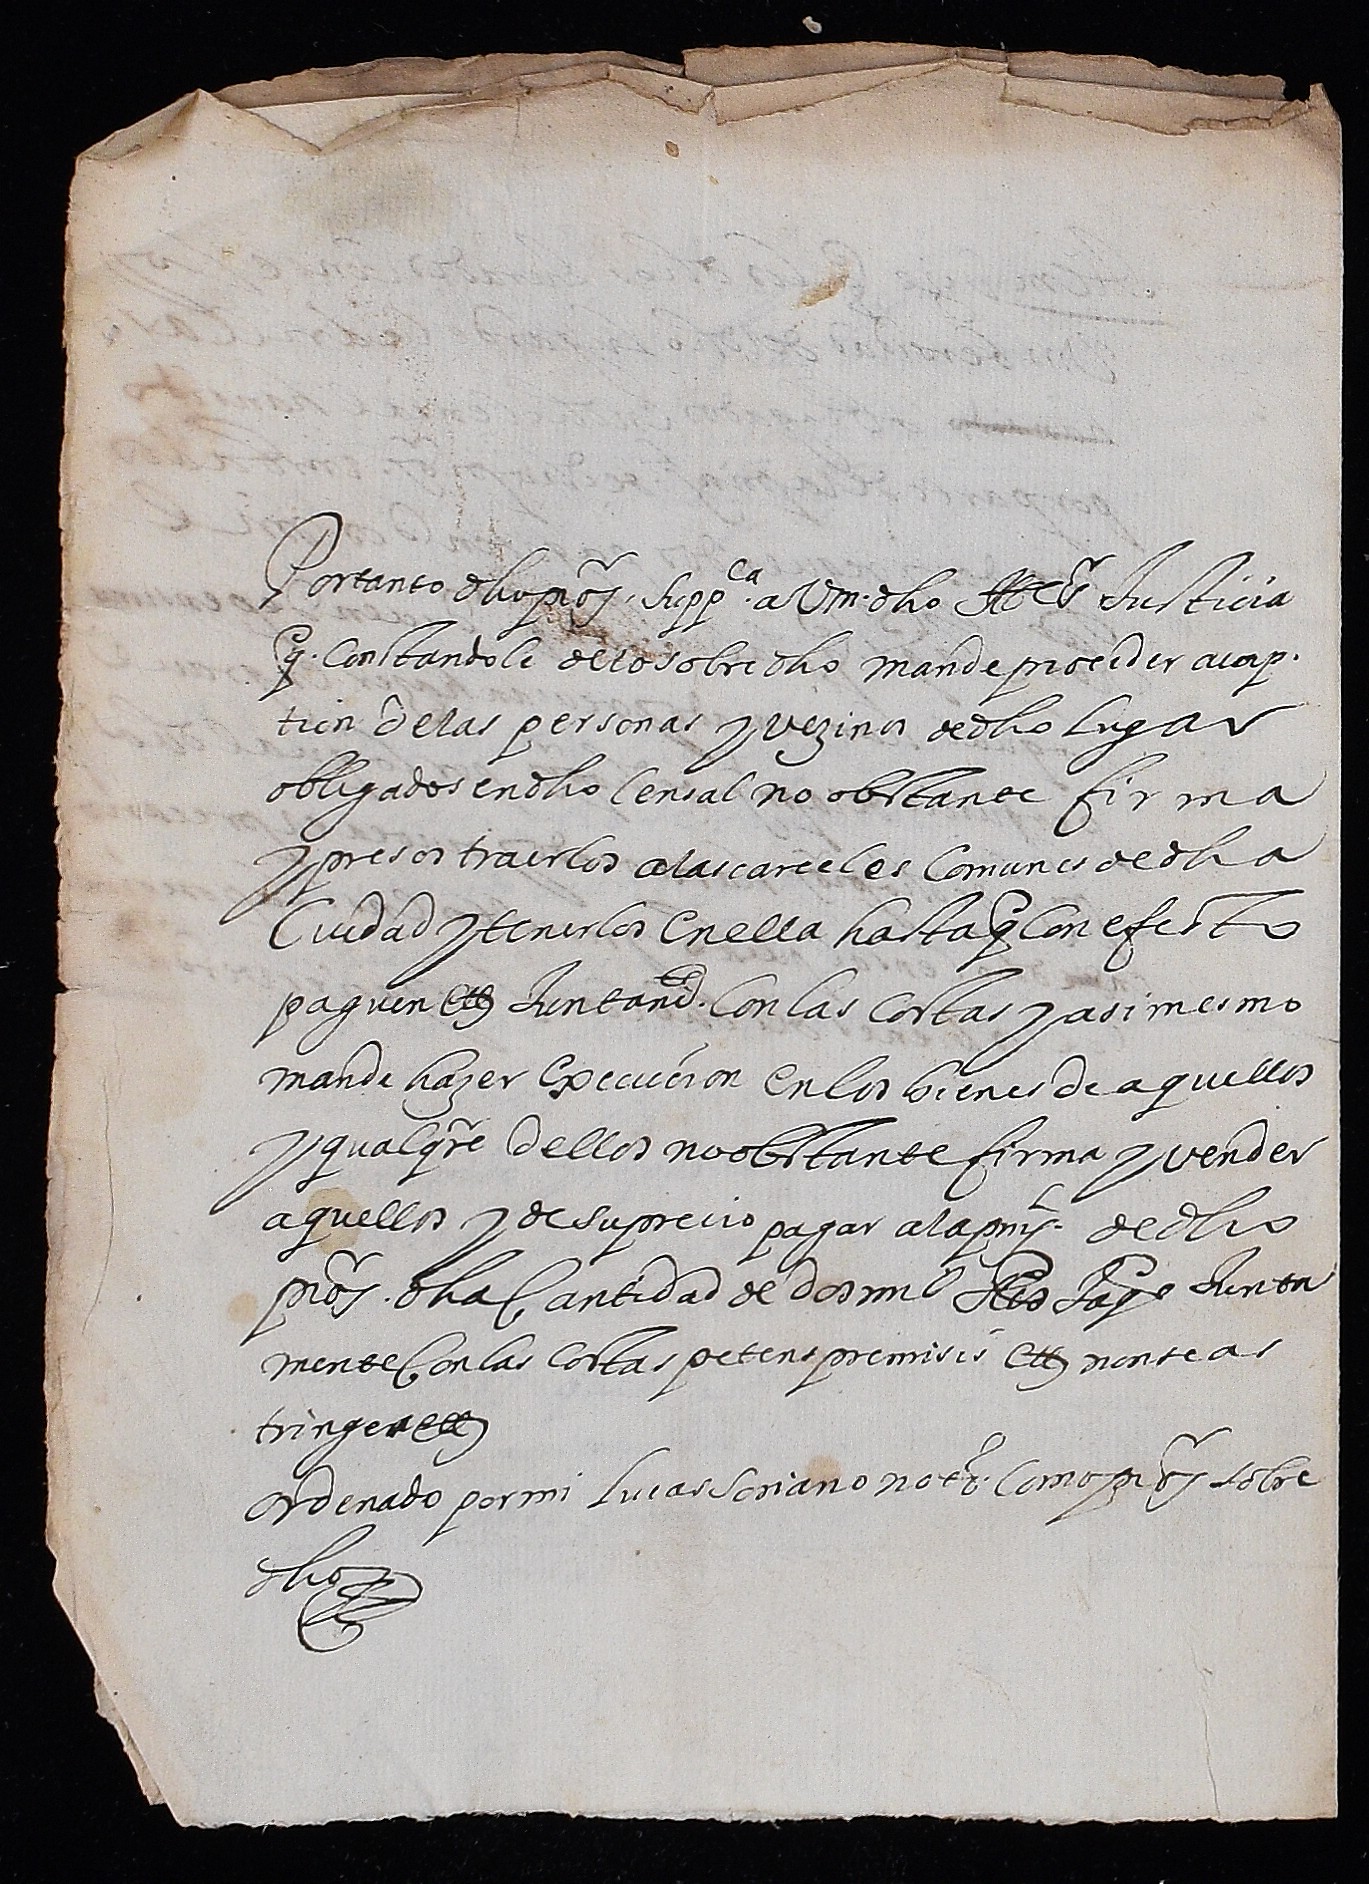 Portanto dho pror. suppca. a Vm. dho Justicia
q. constandole de lo sobredho mande proceder a cap.
tion de las personas y vezinos de dho lugar
obligados en dho censal no obstante firma
y presos traerlos a las carceles comunes de dha
Ciudad y tenerlos en ella hasta q con efecto
paguen etc Juntamd. con las costas y asi mesmo
mande hazer execucion en los bienes de aquellos
y qualqre dellos no obstante firma y vender
aquellos y de su precio pagar a la pnt. de dho
pror. dha cantidad de dos mil Jaqs Junta
mente con las costas petens premisis etc non se as
tringens etc
ordenado por mi Lucas Soriano notº. como pror sobre
dho